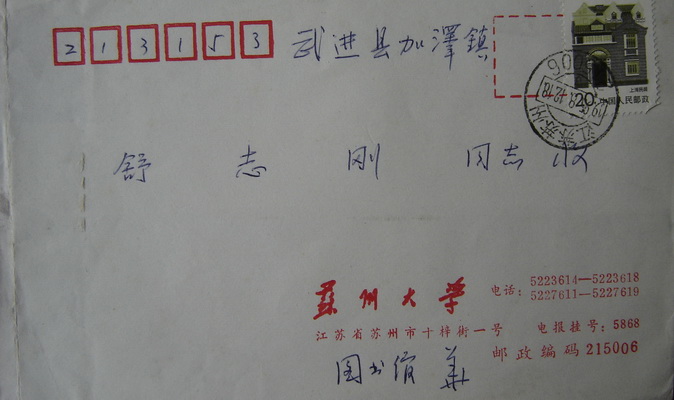 213153 武进县加澤鎮
上海民居
20 中国人民邮政
江苏苏州
舒志刚 同志收
蘇州大学 电话: 5223614—5223618
5227611—5227619
江苏省苏州市十梓街一号 电报挂号: 5868
邮政编码 215006
图书馆